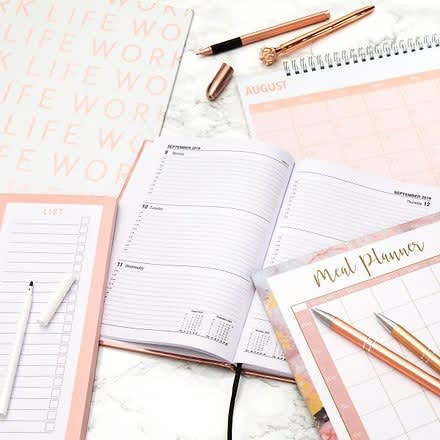 K LIFE WORK
LIFE WORK
K LIFE WORK
LIFE WORK
K LIFE WORK
LIFE WORK
AUGUST
SEPTEMBER 2019
9 Monday
10 Tuesday
11 Wednesday
SEPTEMBER 2019
Thursday 12
LIST
Meal Planner